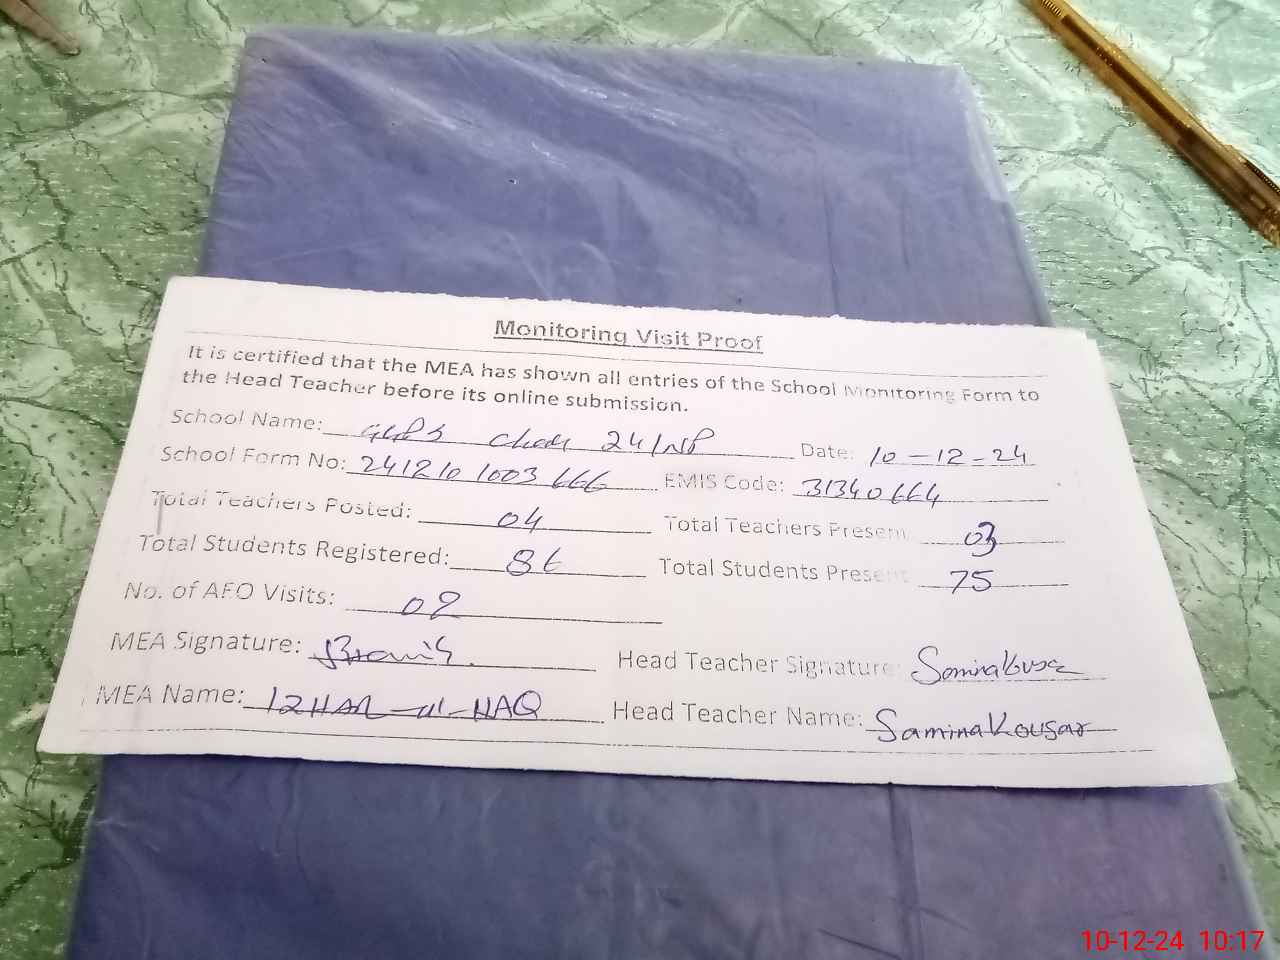 Monitoring Visit Proof
It is certified that the MEA has shown all entries of the School Monitoring Form to
the Head Teacher before its online submission.
School Name: GGPS Chak 24/NP Date: 10-12-24
School Form No: 241210 1003 666 EMIS Code: 31340664
Total Teachers Posted: 04 Total Teachers Present 03
Total Students Registered: 86 Total Students Present 75
No. of AEO Visits: 02
MEA Signature: Head Teacher Signature: Samina Kousar
MEA Name: IZHAR-ul-HAQ Head Teacher Name: Samina Kousar
10-12-24 10:17